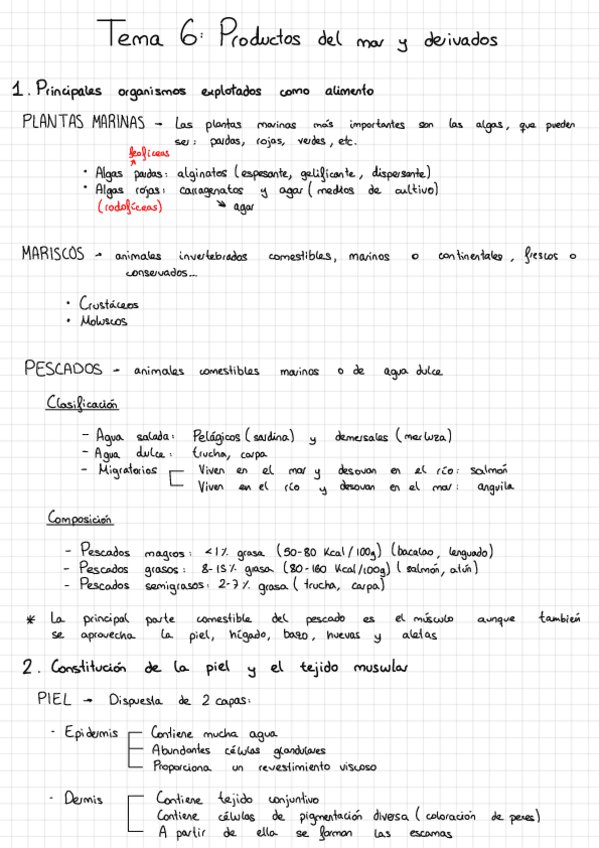 Tema 6: Productos del mar y derivados
1. Principales organismos explotados como alimento
PLANTAS MARINAS → Las plantas marinas más importantes son las algas, que pueden
ser: pardas, rojas, verdes, etc.
feofíceas
· Algas pardas: alginatos (espesante, gelificante, dispersante)
· Algas rojas: carragenatos y agar (medios de cultivo)
(rodofíceas) ↘ agar
MARISCOS → animales invertebrados comestibles, marinos o continentales, frescos o
conservados...
· Crustáceos
· Moluscos
PESCADOS → animales comestibles marinos o de agua dulce
Clasificación
- Agua salada: Pelágicos (sardina) y demersales (merluza)
- Agua dulce: trucha, carpa
- Migratorios Viven en el mar y desovan en el río: salmón
Viven en el río y desovan en el mar: anguila
Composición
- Pescados magros: <1% grasa (50-80 Kcal/100g) (bacalao, lenguado)
- Pescados grasos: 8-15% grasa (80-160 Kcal/100g) (salmón, atún)
- Pescados semigrasos: 2-7% grasa (trucha, carpa)
* La principal parte comestible del pescado es el músculo aunque también
se aprovecha la piel, hígado, bazo, huevas y aletas
2. Constitución de la piel y el tejido muscular
PIEL → Dispuesta de 2 capas:
· Epidermis Contiene mucha agua
Abundantes células glandulares
Proporciona un revestimiento viscoso
· Dermis Contiene tejido conjuntivo
Contiene células de pigmentación diversa (coloración de peces)
A partir de ella se forman las escamas